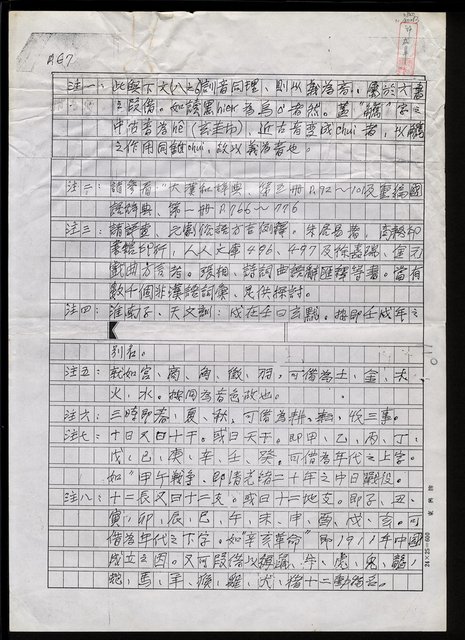 A67
注一、此與下文(八之5)訓者同理、則以義為音。屬於六書
之段借。如讀黑hick為烏o者然。蓋"觿"字之
中古音為hê(玄圭切)、近古音變成chui者,以觿
之作用同錐chui,故以義為音也。
注二:請參看"大漢和辭典、第三冊P.192～10及重編國
語辭典、第一冊P.766～776
注三:請詳览、元劇俗語方言例釋。朱居易著,商務印
書舘印行,人人文庫496、497及徐嘉瑞、金元
戲曲方言考。張相、詩詞曲語辭匯釋等書。當有
數千個非漢語詞彙、足供探討。
注四:淮南子、天文訓:戌在壬曰玄黓。按即壬戌年之
別名。
注五:就如宮、商、角、徵、羽,可借為土、金、木、
火、水。按同為首色故也。
注六:三時即春、夏、秋。可借為耕、耘、收三事。
注七:十日又曰十干。或曰天干。即甲、乙、丙、丁、
戊、己、庚、辛、壬、癸。可借為年代之上字。
如"甲午戰爭、即清光緒二十年之中日戰役。
注八:十二辰又曰十二支。或曰十二地支。即子、丑、
寅、卯、辰、巳、午、未、申、酉、戌、亥。可
借為年代之下字。如辛亥革命"即1911年中國
成立之因。又可段借以稱鼠、牛、虎、兔、龍、
蛇、馬、羊、猴、雞、犬、猪十二動物名。
24×25=600